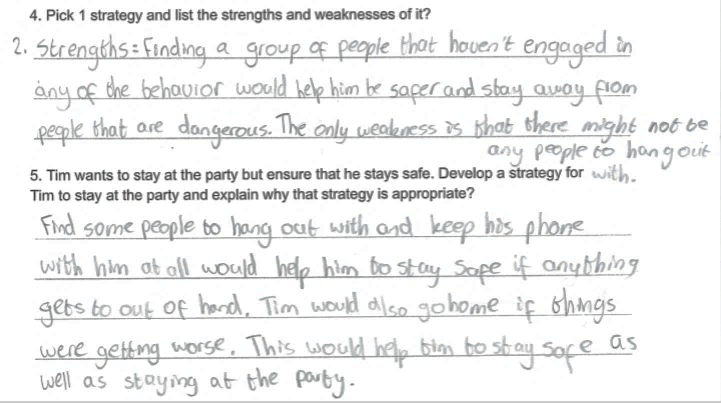 4. Pick 1 strategy and list the strengths and weaknesses of it?
2. Strengths: Finding a group of people that haven't engaged in
any of the behavior would help him be safer and stay away from
people that are dangerous. The only weakness is that there might not be
any people to hang out
with.
5. Tim wants to stay at the party but ensure that he stays safe. Develop a strategy for
Tim to stay at the party and explain why that strategy is appropriate?
Find some people to hang out with and keep his phone
with him at all would help him to stay safe if anything
gets to out of hand. Tim would also go home if things
were getting worse. This would help him to stay safe as
well as staying at the party.